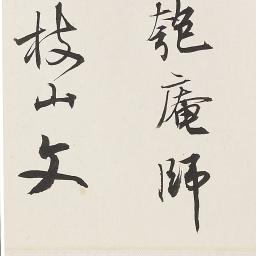 匏庵師
枝山文